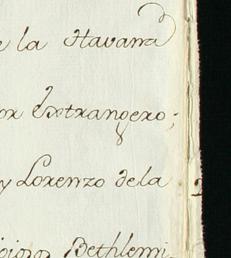 e la Havana
or Extrangero;
y Lorenzo dela
gioso Bethlemi